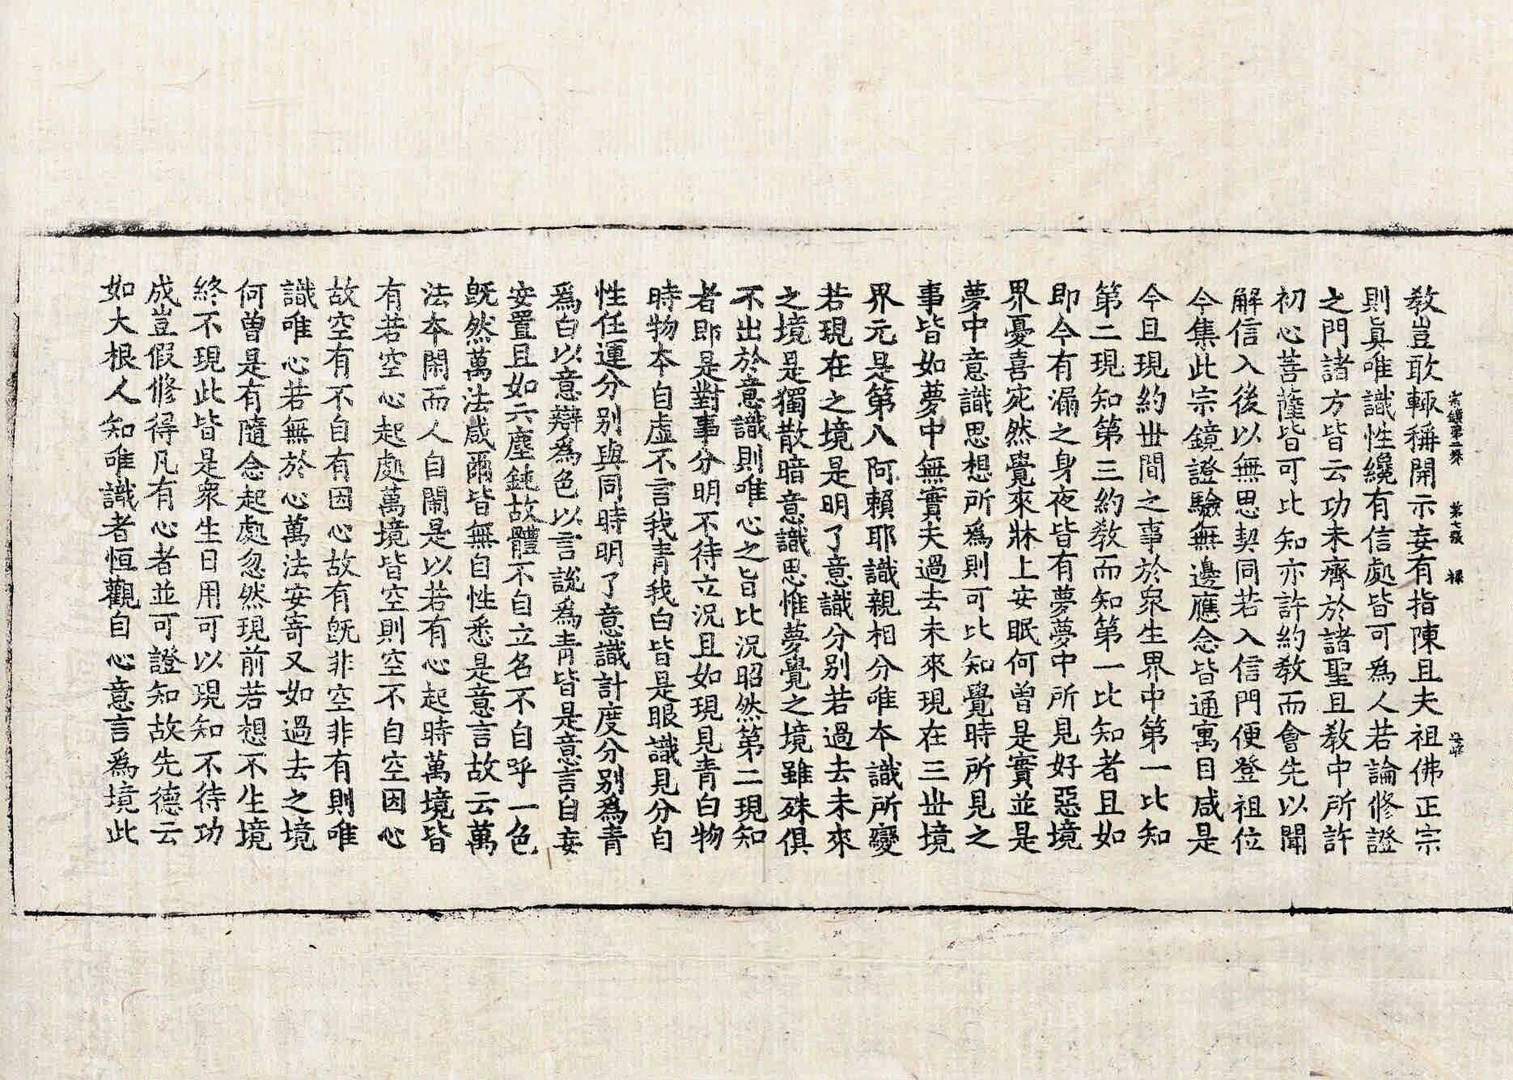 宗鏡第二卷 第七張 祿
教豈敢輙稱開示妄有指陳且夫祖佛正宗
則眞唯識性纔有信處皆可爲人若論修證
之門諸方皆云功未齊於諸聖且教中所許
初心菩薩皆可比知亦許約教而會先以聞
解信入後以無思契同若入信門便登祖位
今集此宗鏡證驗無邊應念皆通寓目咸是
今且現約世間之事於衆生界中第一比知
第二現知第三約教而知第一比知者且如
即今有漏之身夜皆有夢夢中所見好惡境
界憂喜宛然覺來牀上安眠何曾是實並是
夢中意識思想所爲則可比知覺時所見之
事皆如夢中無實夫過去未來現在三世境
界元是第八阿賴耶識親相分唯本識所變
若現在之境是明了意識分別若過去未來
之境是獨散暗意識思惟夢覺之境雖殊俱
不出於意識則唯心之旨比況昭然第二現知
者即是對事分明不待立況且如現見青白物
時物本自虛不言我青我白皆是眼識見分自
性任運分別與同時明了意識計度分別爲青
爲白以意辯爲色以言說爲青皆是意言自妄
安置且如六塵鈍故體不自立名不自呼一色
旣然萬法咸爾皆無自性悉是意言故云萬
法本閑而人自鬧是以若有心起時萬境皆
有若空心起處萬境皆空則空不自空因心
故空有不自有因心故有旣非空非有則唯
識唯心若無於心萬法安寄又如過去之境
何曾是有隨念起處忽然現前若想不生境
終不現此皆是衆生日用可以現知不待功
成豈假修得凡有心者並可證知故先德云
如大根人知唯識者恒觀自心意言爲境此